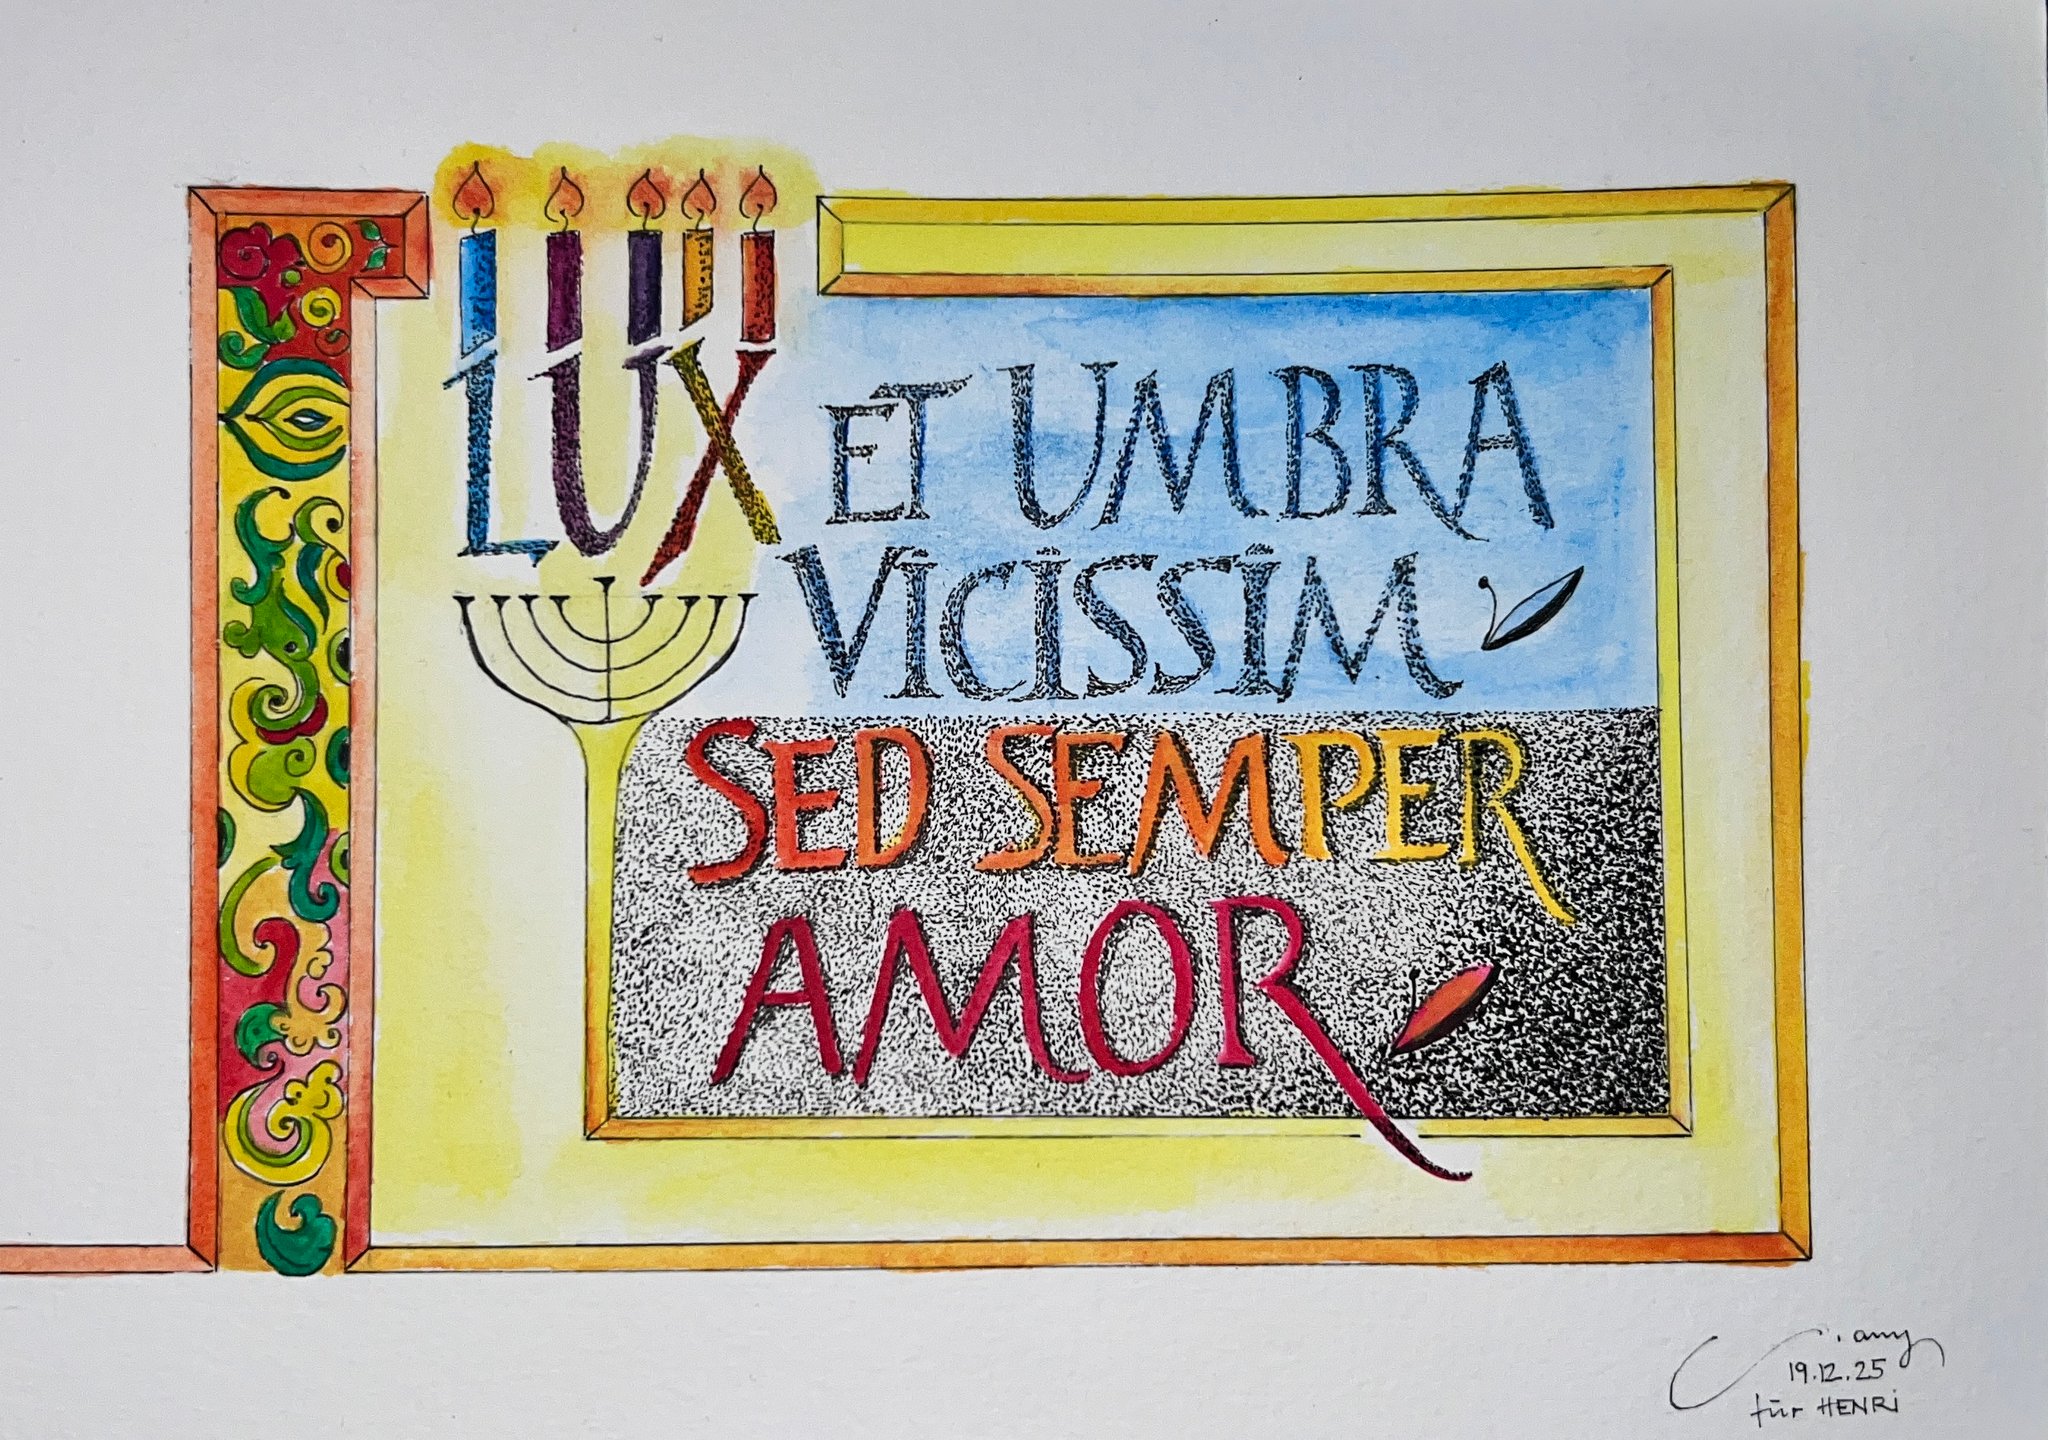 LUX ET UMBRA
VICISSIM
SED SEMPER
AMOR
19.12.25
für HENRI